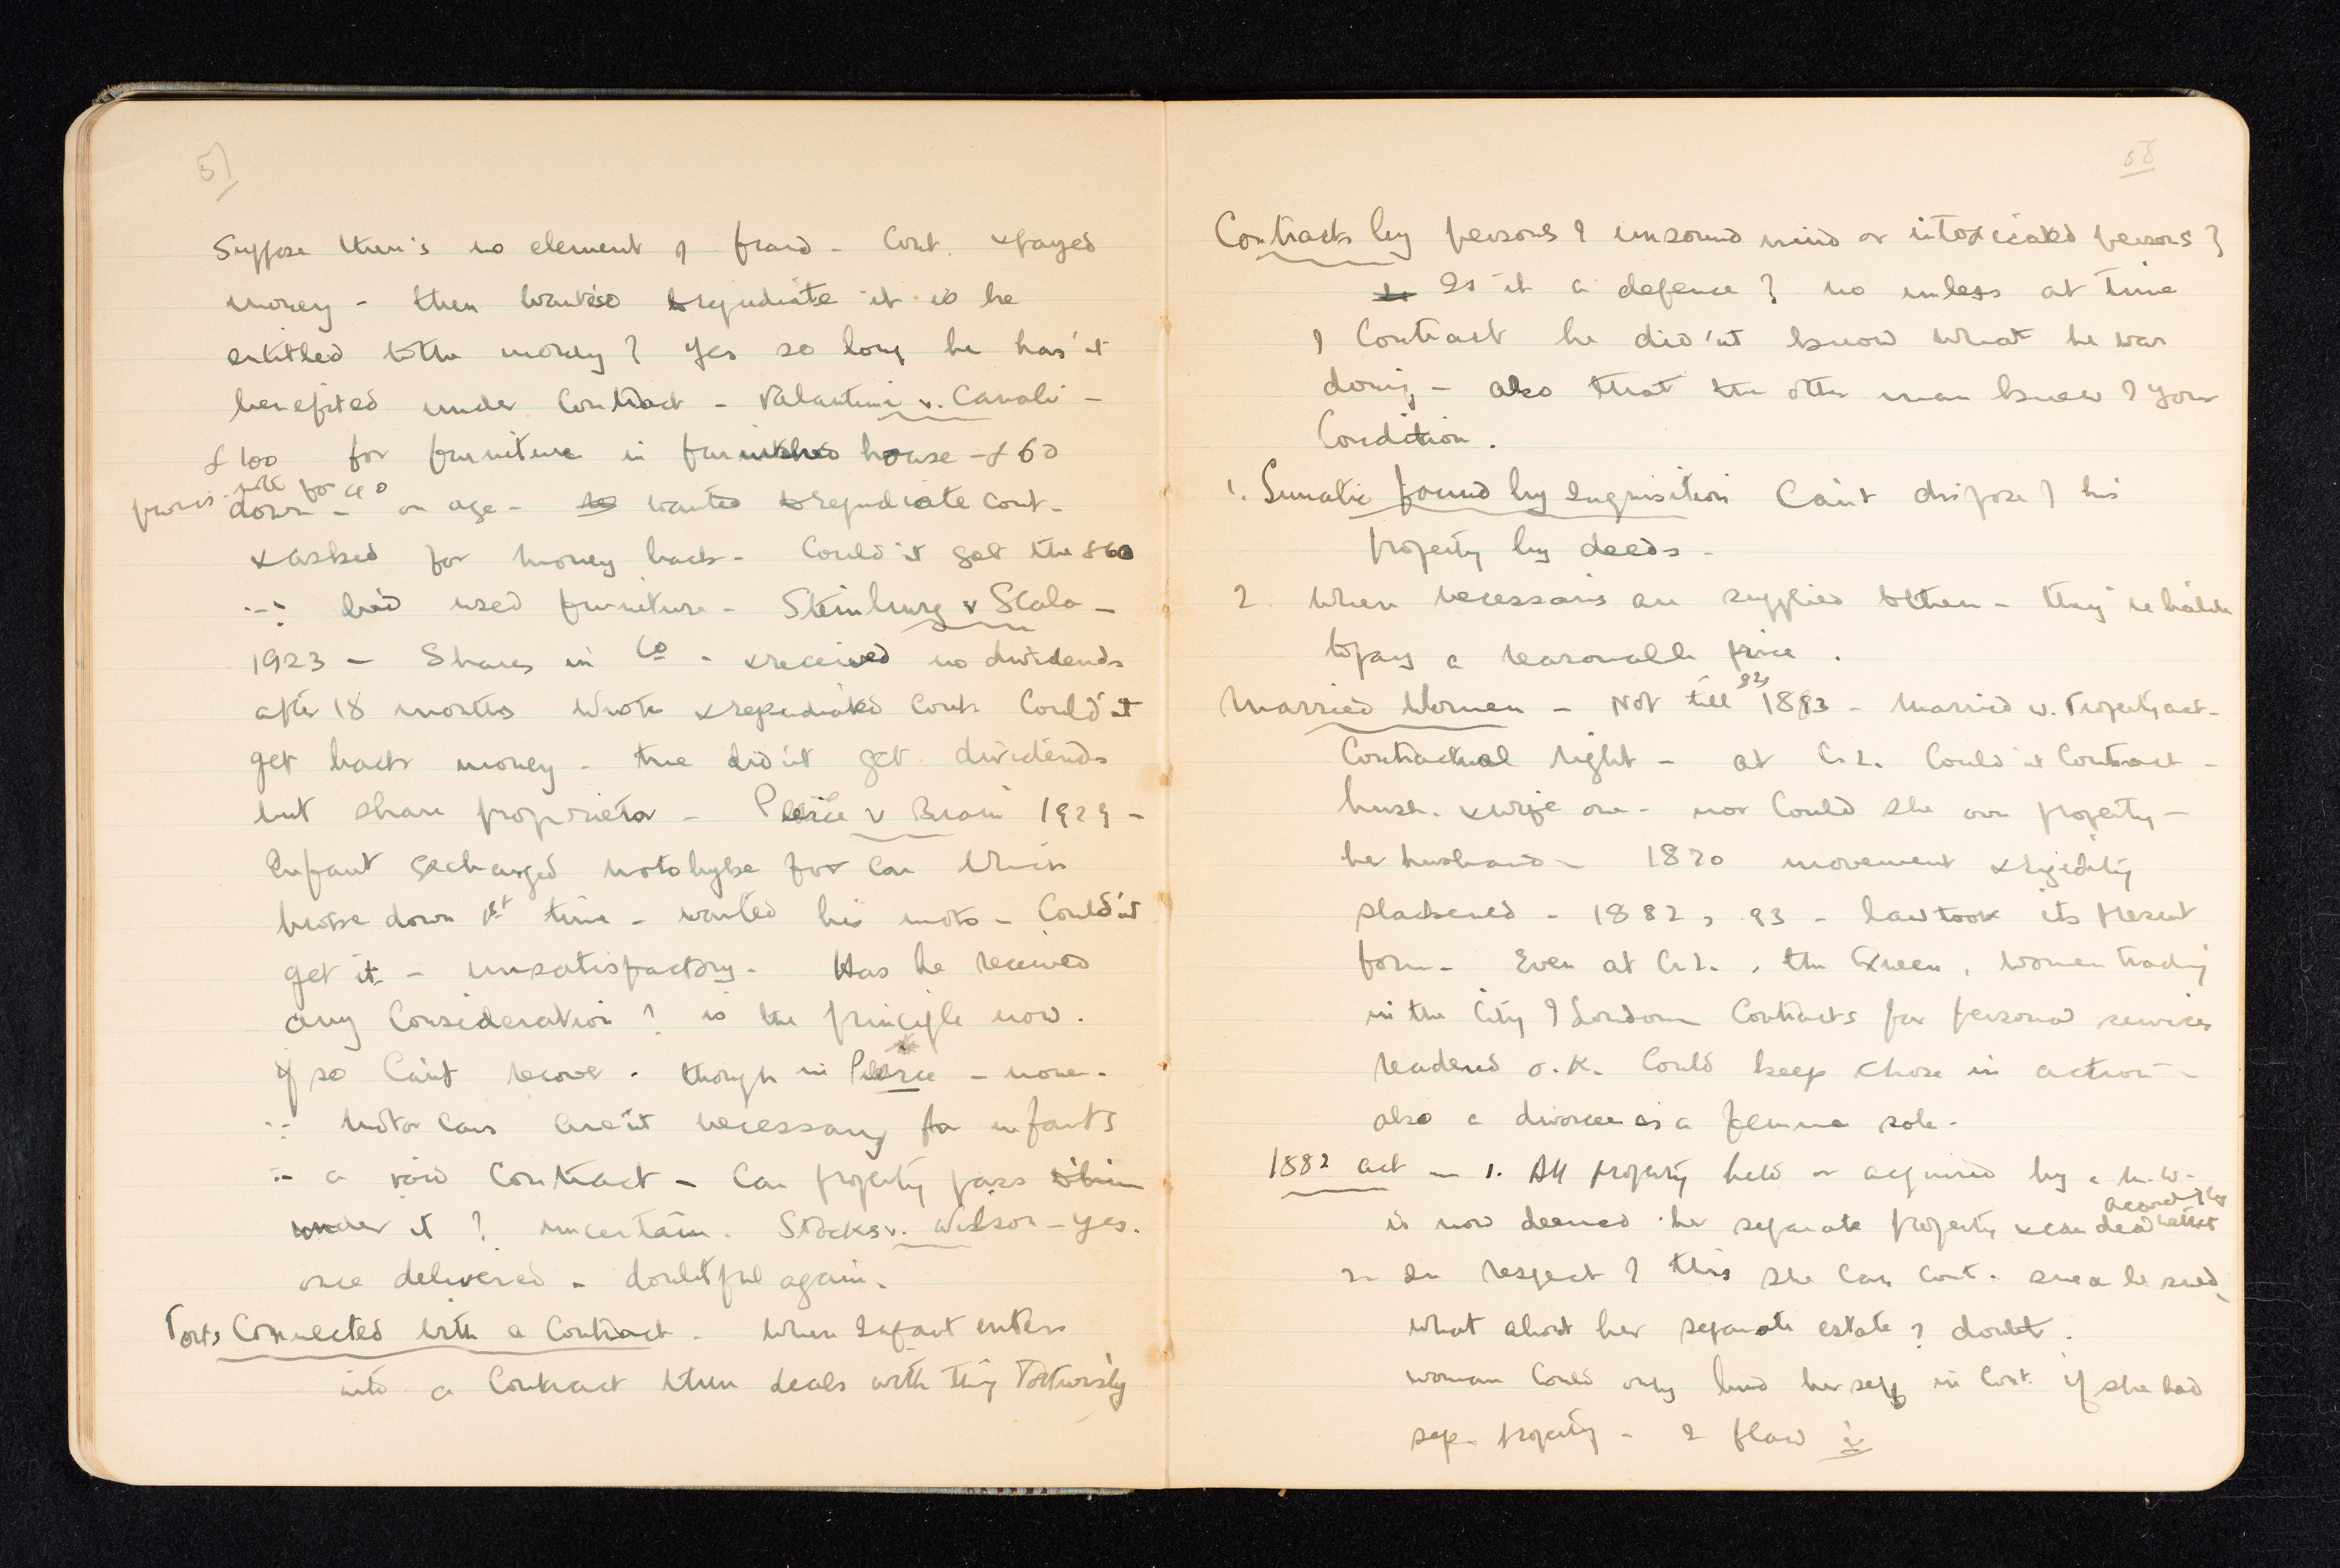 57
Suppose there's no element of fraud - Cont. & payed
money - then wants to repudiate it is he
entitled to the money? Yes so long he has'nt
benefited under Contract - Valantini v. Canali -
£100 for furniture in furnished house - £60
promis. note for 40
down - on age - he wanted to repudiate cont.
& asked for money back - Could'nt get the £60
∵ he'd used furniture - Steinburg v Scala -
1923 - Shares in Co - & received no dividends
after 18 months wrote & repudiated Cont. Could'nt
get back money - true did'nt get dividends
but share proprietor - Pearce v Brain 1929 -
Infant exchanged motobyke for car which
broke down 1st time - wanted his moto - Could'nt
get it - unsatisfactory - Has he received
any Consideration? is the principle now.
If so Can't recover. though in Pearce - none.
∵ motor cars are'nt necessary for infants
∴ a void Contract - Can property pass
under it? uncertain. Stocks v. Wilson - yes.
once delivered - doubtful again.
Torts Connected with a Contract - When Infant enters
into a Contract & then deals with thing Tortuously
58
Contracts by persons of unsound mind or intoxicated persons?
Is it a defence? no unless at time
of Contract he did'nt know what he was
doing - also that the other man knew of your
Condition.
1. Lunatic found by Inquisition Can't dispose of his
property by deeds -
2. When necessaries are supplied to them - they're liable
to pay a reasonable price.
Married Women - Not till 82, 1893 - Married W. Property act -
Contractual right - at C.L. Could'nt Contract -
husb. & wife one - nor Could she own property -
her husband - 1870 movement & rigidity
slackened - 1882, 93 - law took its present
form - Even at C.L., the Queen, women trading
in the City of London Contracts for personal services
rendered O.K. Could keep chose in action -
also a divorcee as a femme sole -
1882 act - 1. All property held or acquired by a M.W.
is now deemed her separate property & can deal with it
2. In respect of this she can cont. sue or be sued,
what about her separate estate? doubt.
woman could only bind herself in Cont. if she had
sep. property - 2 flaw